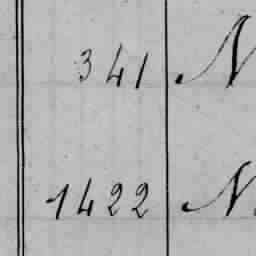 341 N
1422 N.